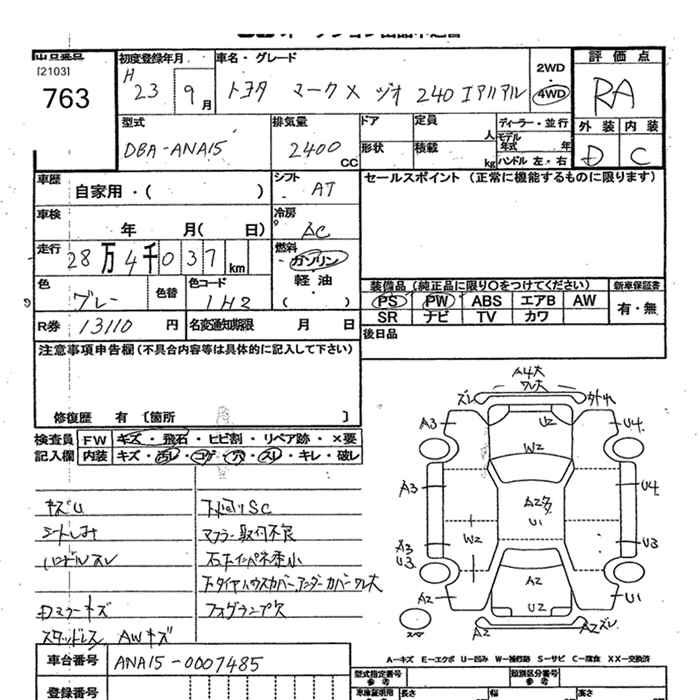 出品番号
[2103]
763
初度登録年月
H 23 9月
車名・グレード
トヨタ マークX ジオ 240エアリアル
2WD
4WD
評価点
RA
外装 内装
D C
型式
DBA-ANA15
排気量
2400 CC
ドア
形状
定員
人
積載
kg
ディーラー・並行
モデル年式 年
ハンドル 左・右
車歴
自家用・( )
シフト
AT
セールスポイント (正常に機能するものに限ります)
車検
年 月( 日)
冷房
AC
走行
28万4千037km
燃料
ガソリン
軽油
( )
色
グレー
色替
色コード
1H2
装備品 (純正品に限り○をつけてください)
新車保証書
PS PW ABS エアB AW
有・無
SR ナビ TV カワ
R券 13110 円
名変通知期限 月 日
後日品
注意事項申告欄 (不具合内容等は具体的に記入して下さい)
修復歴 有 〔箇所 〕
検査員記入欄
FW キズ・飛石・ヒビ割・リペア跡・×要
内装 キズ・汚レ・コゲ・穴・スレ・キレ・破レ
キズU
シートしみ
ハンドルスレ
下回りSC
マフラー取付不良
Dミラーキズ
スタッドレス AWキズ
A4大
ワレ大
ズレ
外れ
A3
U2
U4
W2
A3
A2多
U4
U1
W2
A3
U3
U3
A2
A2
U2
U1
A2
A2ズレ
A…キズ E…エクボ U…凹み W…補修跡 S…サビ C…腐食 XX…交換済
車台番号
ANA15-0007485
登録番号
型式指定番号
参考
類別区分番号
参考
車庫証明用
参考
長さ
幅
高さ